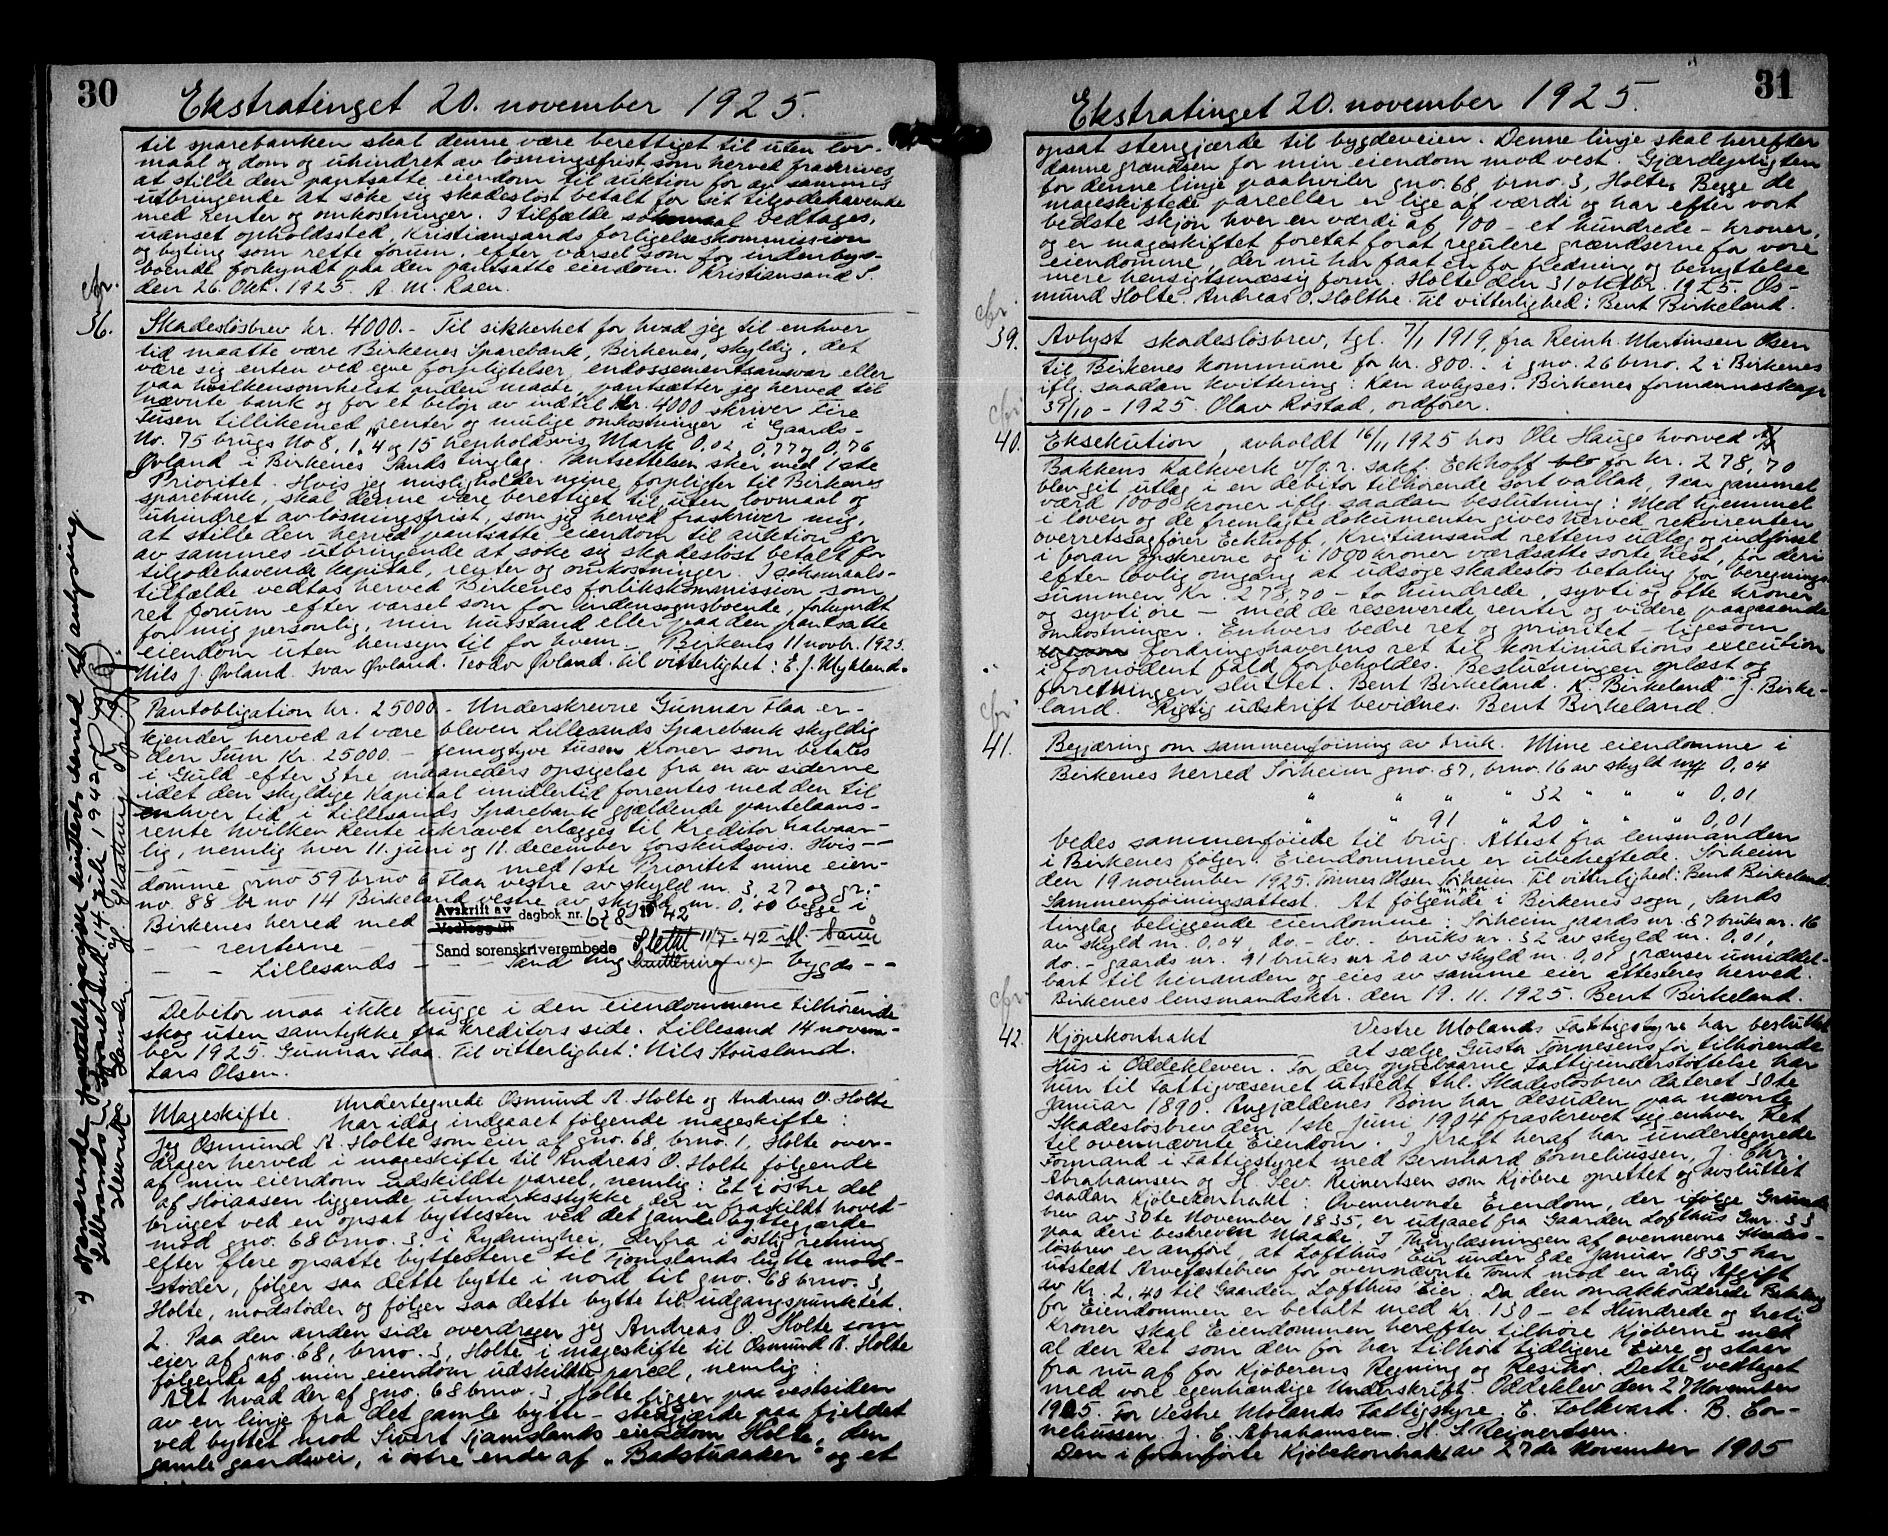 30
Ekstratinget 20. november 1925.
til sparebanken skal denne være berettiget til uten lov-
maal og dom og uhindret av løsningsfrist som herved fraskrives
at stille den pantsatte eiendom til auktion for av sammes
utbringende at søke sig skadesløst betalt for sit tilgodehavende
med renter og omkostninger. I tilfælde søksmaal vedtages,
uanset opholdssted, Kristiansands forligelseskommission
og byting som rette forum, efter varsel som for indenbys-
boende forkyndt paa den pantsatte eiendom. Kristiansand S
den 26. Okt. 1925. A. M. Raen.
cfr.
36.
Skadesløsbrev kr. 4000.- Til sikkerhet for hvad jeg til enhver
tid maatte være Birkenes Sparebank, Birkenes, skyldig, det
være sig enten ved egne forpligtelser, endossementsansvar eller
paa hvilkensomhelst anden maate, pantsætter jeg herved til
nævnte bank og for et beløp av indtil kr. 4000 skriver fire
tusen tillikemed renter og mulige onkostninger i Gaards-
No. 75 brugs No 8, 1, 4 og 15 henholdsvis Mark 0,02, 0,77 og 0,76
Øvland i Birkenes Sands tinglag. Pantsettelsen sker med 1ste
Prioritet. Hvis jeg misligholder mine forpligter til Birkenes
sparebank, skal denne være berettiget til uten lovmaal og
uhindret av løsningsfrist, som jeg herved fraskriver mig,
at stille den herved pantsatte eiendom til auktion for
av sammes utbringende at søke sig skadesløst betalt for
tilgodehavende kapital, renter og omkostninger. I søksmaals-
tilfælde vedtas herved Birkenes forlikskommission som
ret forum efter varsel som for indensognsboende, forkyndt
for mig personlig, min husstand eller paa den pantsatte
eiendom uten hensyn til for hvem. Birkenes 11 novbr. 1925.
Nils J. Øvland. Ivar Øvland. Teodor Øvland. til vitterlighet: E. J. Mykland.
Pantobligation kr. 25000 - Underskrevne Gunnar Flaa er-
kjender herved at være bleven Lillesands Sparebank skyldig
den Sum Kr. 25000 - femogtyve tusen Kroner som betales
i Guld efter 3 tre maaneders opsigelse fra en av siderne
idet den skyldige Kapital imidlertid forrentes med den til
enhver tid i Lillesands Sparebank gjældende pantelaans-
rente hvilken Rente ukrævet erlægges til Kreditor halvaar-
lig, nemlig hver 11. juni og 11. december forskudsvis. Hvis --
med 1ste Prioritet mine eien-
domme gno 59 brno 6 Flaa vestre av skyld m. 3,27 og gr.-
no. 88 br no 14 Birkeland vestre av skyld m. 0,80 begge i
Birkenes herred med
- - renterne - -
- - Lillesands - - - Sand ting - - bygds - -
Avskrift av
Vedlegg til
dagbok nr. 678 1942
Sand sorenskriverembede
Slettet 11/7-42
kvittering
Debitor maa ikke hugge i den eiendommene tilhørende
skog uten samtykke fra Kreditors side. Lillesand 14 novem-
ber 1925. Gunnar Flaa. Til vitterlighet: Nils Stousland.
Lars Olsen.
Mageskifte. Undertegnede Osmund A. Holte og Andreas O. Holte
har idag indgaaet følgende mageskifte:
Jeg Osmund A. Holte som eier af gno. 68, brno. 1, Holte over-
drager herved i mageskifte til Andreas O. Holte følgende
af min eiendom udskildte parsel, nemlig: Et i østre del
af Hoiaasen liggende utmarksstykke, der er fraskildt hoved-
bruget ved en opsat byttesten ved det gamle byttegjærde
mod gno. 68 brno. 3 i Rydninghei, derfra i østlig retning
efter flere opsatte byttestene til Tjomslands bytte mod-
støder, følger saa dette bytte i nord til gno. 68 brno. 3,
Holte, modstøder og følger saa dette bytte til udgangspunktet.
2. Paa den anden side overdrager jeg Andreas O. Holte som
eier af gno. 68, brno. 3, Holte i mageskifte til Osmund A. Holte
følgende af min eiendom udskildte parcel, nemlig:
Alt hvad der af gno. 68 brno. 3 Holte ligger paa vestsiden
av en linje fra det gamle bytte - stengjærde paa fjeldet
ved byttet mod Sivert Tjamslands eiendom Holte, den
gamle gaardsvei, i østre ende af "Badstuaaker" og et
31
Ekstratinget 20. november 1925.
opsat stengjærde til bygdeveien. Denne linje skal herefter
danne grændsen for min eiendom mod vest. Gjærdepligten
for denne linje paahviler gno. 68, brno. 3, Holte. Begge de
mageskiftede parceller er lige af værdi og har efter vort
bedste skjøn hver en værdi af 100 - et hundrede - kroner,
og er mageskiftet foretat forat regulere grændserne for vore
eiendomme, der nu har faat en for fredning og benyttelse
mere hensigtsmæssig form. Holte den 31 oktbr. 1925. Os-
mund Holte. Andreas O. Holthe. Til vitterlighed: Bent Birkeland.
cfr
39.
Avlyst skadesløsbrev, tgl. 7/1 1919, fra Reinh. Martinsen Olsen
til Birkenes kommune for kr. 800.- i gno. 26 brno. 2 i Birkenes
iflg. saadan kvittering: Kan avlyses. Birkenes formannsskap
31/10 - 1925. Olav Røstad, ordfører.
cfr
40.
Eksekution, avholdt 16/11 1925 hos Ole Hauge hvorved A/S
Bakkens Kalkverk v/o.r. sakf. Eckhoff for kr. 278,70
blev git utlæg i en debitor tilhørende sort vallak, 9 aar gammel
værd 1000 kroner iflg. saadan beslutning: Med hjemmel
i loven og de fremlagte dokumenter gives herved rekvirenten
overretssagfører Eckhoff, Kristiansand rettens udlæg og indførsel
i foran opskrevne og i 1000 kroner værdsatte sorte hest, for deri
efter lovlig omgang at udsøge skadesløs betaling for beregnings-
summen Kr. 278,70 - to hundrede, sytti og otte kroner
og sytti øre - med de reserverede renter og videre paagaaende
omkostninger. Enhvers bedre ret og prioritet - ligesom
fordringshaverens ret til kontinuations execution
i fornødent fald forbeholdes. Beslutningen oplæst og
forretningen sluttet. Bent Birkeland. K. Birkeland J. Birke-
land. Rigtig udskrift bevidnes. Bent Birkeland.
cfr
41.
Begjæring om sammenføining av bruk. Mine eiendomme i
Birkenes herred Sørheim gno. 87, brno. 16 av skyld m 0,04
" " " " 32 " " " 0,01
" " 91 " 20 " " " 0,01
bedes sammenføiede til brug. Attest fra lensmanden
i Birkenes følger. Eiendommene er ubeheftede. Sørheim
den 19 november 1925. Tønnes Olsen Sørheim. Til vitterlighed: Bent Birkeland.
Sammenføiningsattest. At følgende i Birkenes sogn, Sands
tinglag beliggende eiendomme: Sørheim gaards nr. 87 bruks nr. 16
av skyld m. 0,04, do. - do. - bruks nr. 32 av skyld m. 0,01,
do. - gaards nr. 91 bruks nr 20 av skyld m. 0,01 grænser umiddel-
bart til hinanden og eies av samme eier attesteres herved.
Birkenes lensmandsktr. den 19. 11. 1925. Bent Birkeland.
cfr.
42.
Kjøpekontrakt Vestre Molands Fattigstyre har besluttet
at sælge Gusta Tønnesens før tilhørende
Hus i Oddekleven. For den oppebaarne Fattigunderstøttelse har
hun til Fattigvæsenet utstedt thl. Skadesløsbrev dateret 30te
januar 1890. Avgjældenes Børn har desuden paa nævnte
Skadesløsbrev den 1ste juni 1904 fraskrevet sig enhver Ret
til ovennævnte Eiendom. I Kraft heraf har undertegnede
Formand i Fattigstyret med Bernhard Corneliussen, J. Chr.
Abrahamsen og H. Sev. Reinertsen som Kjøbere oprettet og avsluttet
saadan Kjøbekontrakt: Ovennevnte Eiendom, der ifølge Grund-
brev av 30te November 1835, er udgaaet fra Gaarden Lofthus Gnr. 33
paa deri beskreven Maade. I Thinglæsningen af ovennevne Skades-
løsbrev er anført, at Lofthus Eier under 8de Januar 1855 har
utstedt Arvefæstebrev for overnævnte Tomt mod en årlig Afgift
av Kr. 2,40 til Gaarden Lofthus' Eier. Da den omakkorderede Betaling
for Eiendommen er betalt med kr. 130 - et Hundrede og treti
Kroner skal Eiendommen herefter tilhøre Kjøberne med
al den Ret som den før har tilhørt tidligere Eiere og staar
fra nu af for Kjøberens Regning og Resiko. Dette vedtaget
med vore egenhændige Underskrift. Oddeklev den 27 November
1905. For Vestre Molands Fattigstyre. E. Folkvard. B. Cor-
neliussen. J. C. Abrahamsen. H. S. Reinertsen.
Den i foranførte Kjøbekontrakt av 27de November 1905
Nærende pantobligasjon kvitteres med til avlysing.
Lillesands Sparebank, 14 juli 1942.